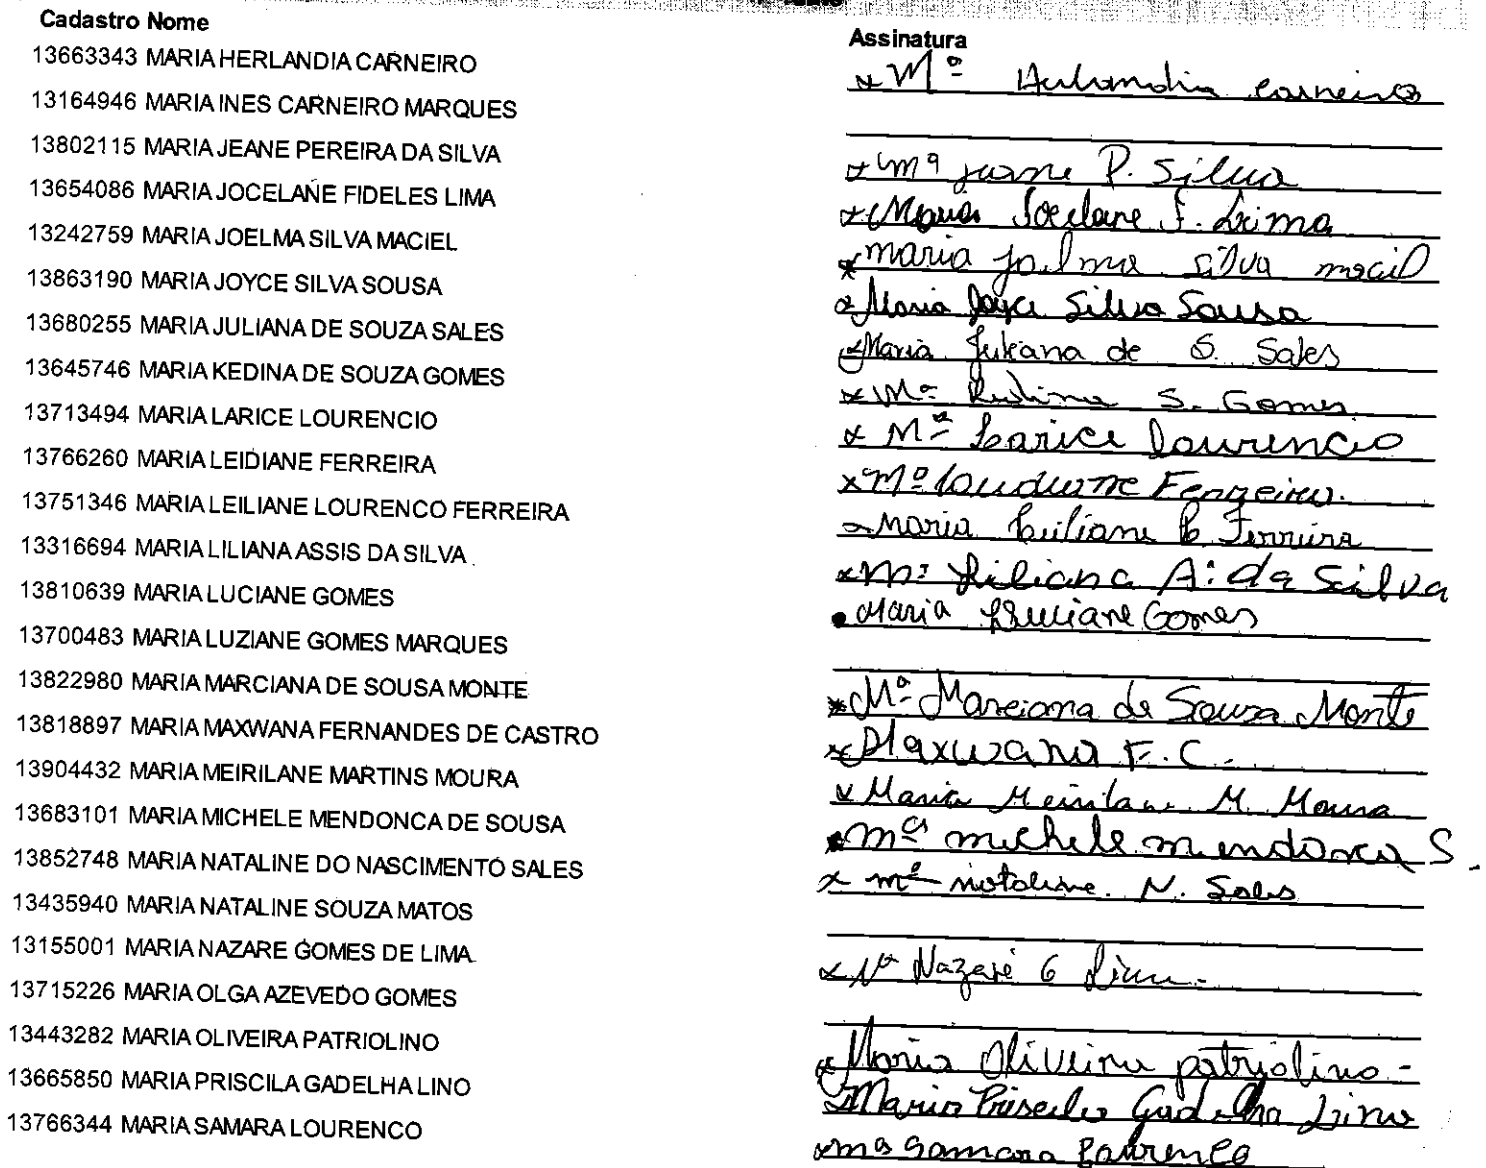 Cadastro Nome
Assinatura
13663343 MARIA HERLANDIA CARNEIRO
Mª Carneiro
13164946 MARIA INES CARNEIRO MARQUES
13802115 MARIA JEANE PEREIRA DA SILVA
Mª Jeane P. Silva
13654086 MARIA JOCELANE FIDELES LIMA
Maria Jocelane F. Lima
13242759 MARIA JOELMA SILVA MACIEL
maria silva
13863190 MARIA JOYCE SILVA SOUSA
Maria Joyce Silva Sousa
13680255 MARIA JULIANA DE SOUZA SALES
Maria Juliana de S. Sales
13645746 MARIA KEDINA DE SOUZA GOMES
Mª Kedina S. Gomes
13713494 MARIA LARICE LOURENCIO
Mª Larice Lourencio
13766260 MARIA LEIDIANE FERREIRA
Mª Ferreira.
13751346 MARIA LEILIANE LOURENCO FERREIRA
Maria Leiliane L. Ferreira
13316694 MARIA LILIANA ASSIS DA SILVA
Mª Liliana A. da Silva
13810639 MARIA LUCIANE GOMES
Maria Luciane Gomes
13700483 MARIA LUZIANE GOMES MARQUES
13822980 MARIA MARCIANA DE SOUSA MONTE
Mª Marciana de Sousa Monte
13818897 MARIA MAXWANA FERNANDES DE CASTRO
Maxwana F. C.
13904432 MARIA MEIRILANE MARTINS MOURA
Maria M. Moura
13683101 MARIA MICHELE MENDONCA DE SOUSA
mª michele mendonca S.
13852748 MARIA NATALINE DO NASCIMENTO SALES
mª nataline. N. Sales
13435940 MARIA NATALINE SOUZA MATOS
13155001 MARIA NAZARE GOMES DE LIMA
Mª Nazaré G Lima
13715226 MARIA OLGA AZEVEDO GOMES
13443282 MARIA OLIVEIRA PATRIOLINO
Maria Oliveira patriolino
13665850 MARIA PRISCILA GADELHA LINO
Maria Priscila Gadelha Lino
13766344 MARIA SAMARA LOURENCO
mª Samara Lourenco